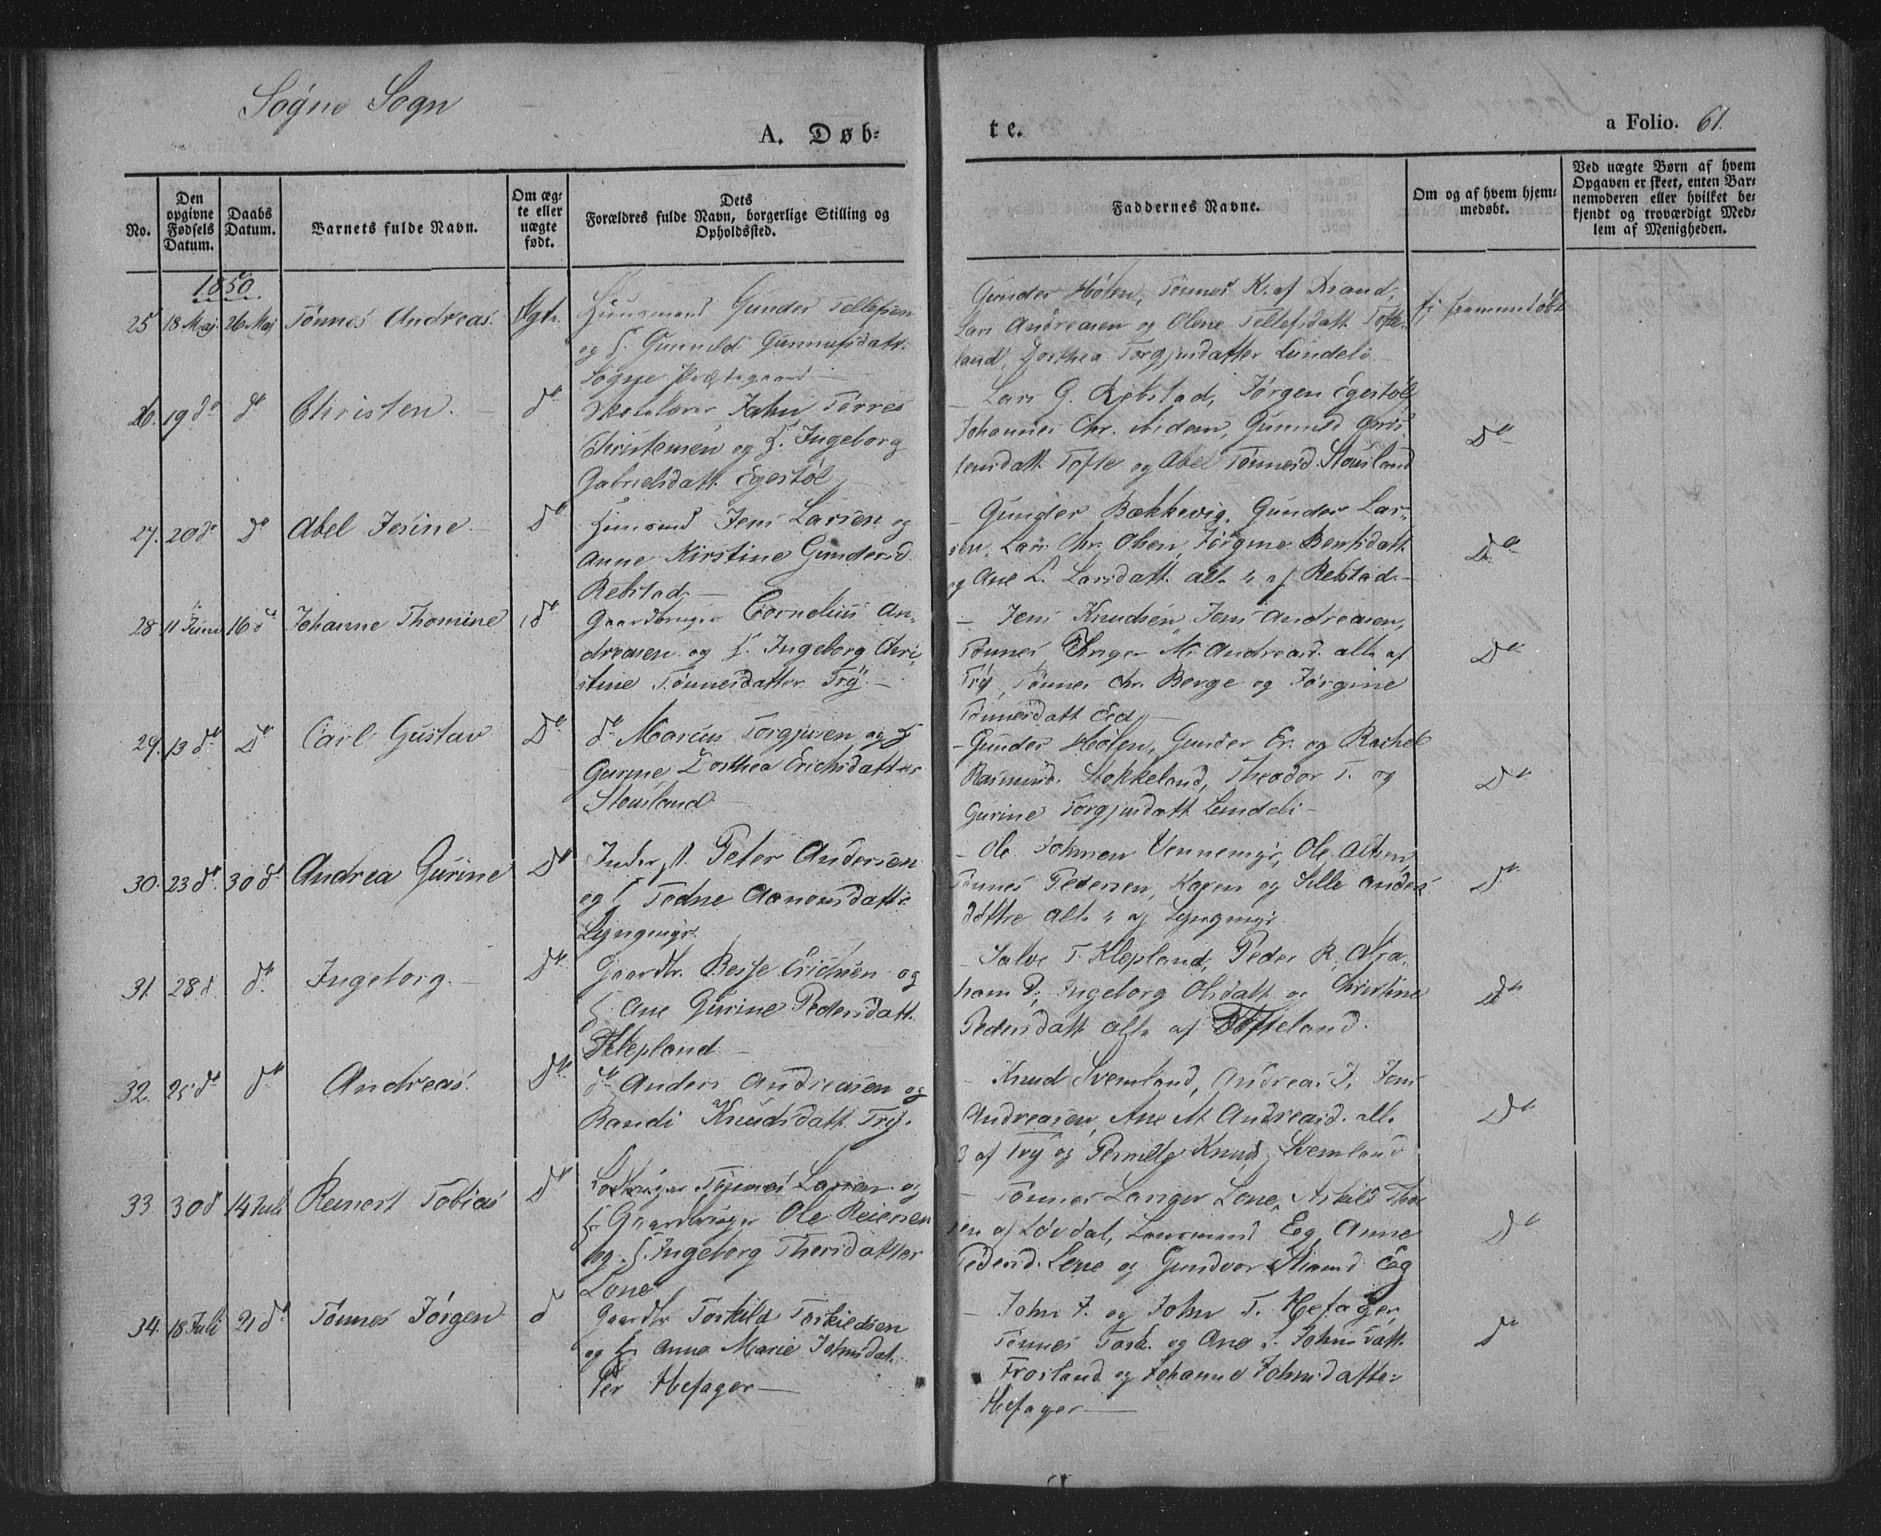 Søgne Sogn
A. Døb-
te.
a Folio. 61.
No.
Den opgivne Fødsels Datum.
Daabs Datum.
Barnets fulde Navn.
Om ægte eller uægte født.
Dets
Forældres fulde Navn, borgerlige Stilling og
Opholdssted.
Faddernes Navne.
Om og af hvem hjem-
medøbt.
Ved uægte Børn af hvem
Opgaven er skeet, enten Bar-
nemoderen eller hvilket be-
kjendt og troværdigt Med-
lem af Menigheden.
1850
25 18 Maj 26 Maj Tønnes Andreas. Ægte.
Huusmand Gunder Tellefsen
og H. Gunnild Gunnufsdatt.
Søgne Præstegaard
Gunder Hølen, Tønnes K. af
Lars Andreasen og Olene Tellefsdatt. Tofte-
land, Dorthea Torgjusdatter Lundeli
26. 19 do do Christen. do
John Tørres
Christensen og H. Ingeborg
Gabrielsdatt. Egestøl
Lars G. Rebstad, Jørgen Egestøl
Johannes Chr. Gunnild
tensdatt. Tofte og Abel Tønnesd. Stousland
Do
27. 20 do Do Abel Jesine Do
Huusmd Jens Larsen og
Anne Kirstine Gundersd.
Rebstad
Gunder Bækkevig, Gunder Lar-
sen, Lars Chr. Olsen, Jørgine Berntsdatt.
og Ane L. Larsdatt. alle 4 af Rebstad
Do
28 11 Juni 16 do Johanne Thomine do
Gaardbruger Cornelius An-
dreasen og H. Ingeborg Chri-
stine Tønnesdatter Try
Jens Knudsen, Jens Andreasen,
Tønnes M. Andreasd. alle af
Try, Tønnes Chr. Berge og Jørgine
Tønnesdatt. Eeg
Do
29. 13 do Do Carl Gustav Do
do Marcus Torgjusen og H
Gurine Dorthea Erichsdatter
Stousland
Gunder Hølen, Gunder Er. og Rachel
Rasmusd. Stokkeland, Theodor T. og
Gurine Torgjusdatt. Lundeli
Do
30. 23 do 30 do Andrea Gurine Do
Inderst. Peter Andersen
og H Todne Aanonsdatter
Lyngmyr.
Ole Johnsen Vennemyr, Ole
Tønnes Pedersen, Karen og Sille Anders-
døttre alle 4 af Lyngmyr
Do
31. 28 d. do Ingeborg. Do
Gaardbr. Berge Erichsen og
H. Ane Gurine Pedersdatt.
Klepland
Salve T. Klepland, Peder R., Abra-
ham D., Ingeborg Olsdatt. og Christine
Pedersdatt. alle af Tofteland.
do
32. 25 do do Andreas. Do
do Anders Andreasen og
Randi Knudsdatt. Try.
Knud Svemland, Andreas J. Jens
Andreasen, Ane M Andreasd. alle
3 af Try og Pernille Knuds. Svemland
Do
33. 30 d 14 Juli Reinert Tobias do
Gaardbruger Ole Reiersen
og H. Ingeborg Thorsdatter
Lone
Tønnes Larsen Lone, Askild Thor-
sen af Løvdal, Lensmand Eeg, Anne
Pedersd. Lone og Gundvor Eeg
Do
34. 18 Juli 21 do Tønnes Jørgen d
Gaardbr Torkild Torkildsen
og H. Anne Marie Johnsdat-
ter Hefager
John J. og John T. Hefager,
Tønnes Tork. og Ane J. Johnsdatt.
Frosland og Johanne Johnsdatter
Hefager
Do